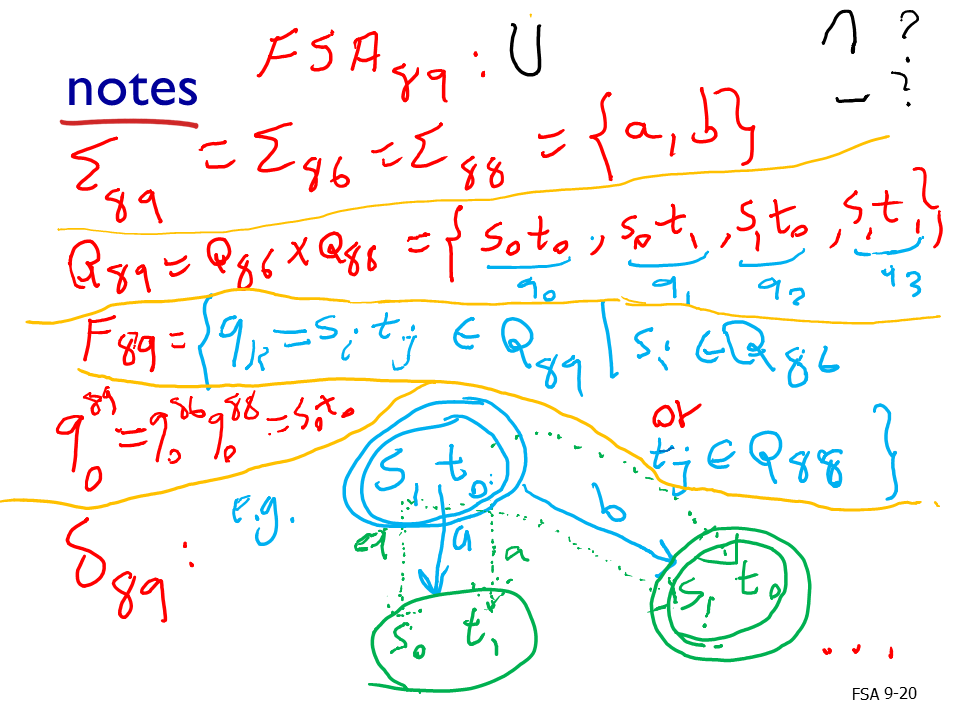 notes FSA₈₉ : ∪ ∩ ?
− ?
Σ₈₉ = Σ₈₆ = Σ₈₈ = {a, b}
Q₈₉ = Q₈₆ × Q₈₈ = {s₀t₀, s₀t₁, s₁t₀, s₁t₁}
q₀ q₁ q₂ q₃
F₈₉ = {qₖ = sᵢ tⱼ ∈ Q₈₉ | sᵢ ∈ Q₈₆
or
tⱼ ∈ Q₈₈ }
q₀⁸⁹ = q₀⁸⁶ q₀⁸⁸ = s₀t₀
e.g. s₁ t₀
δ₈₉ :
a a a b
s₀ t₁ s₁ t₀ ...
FSA 9-20